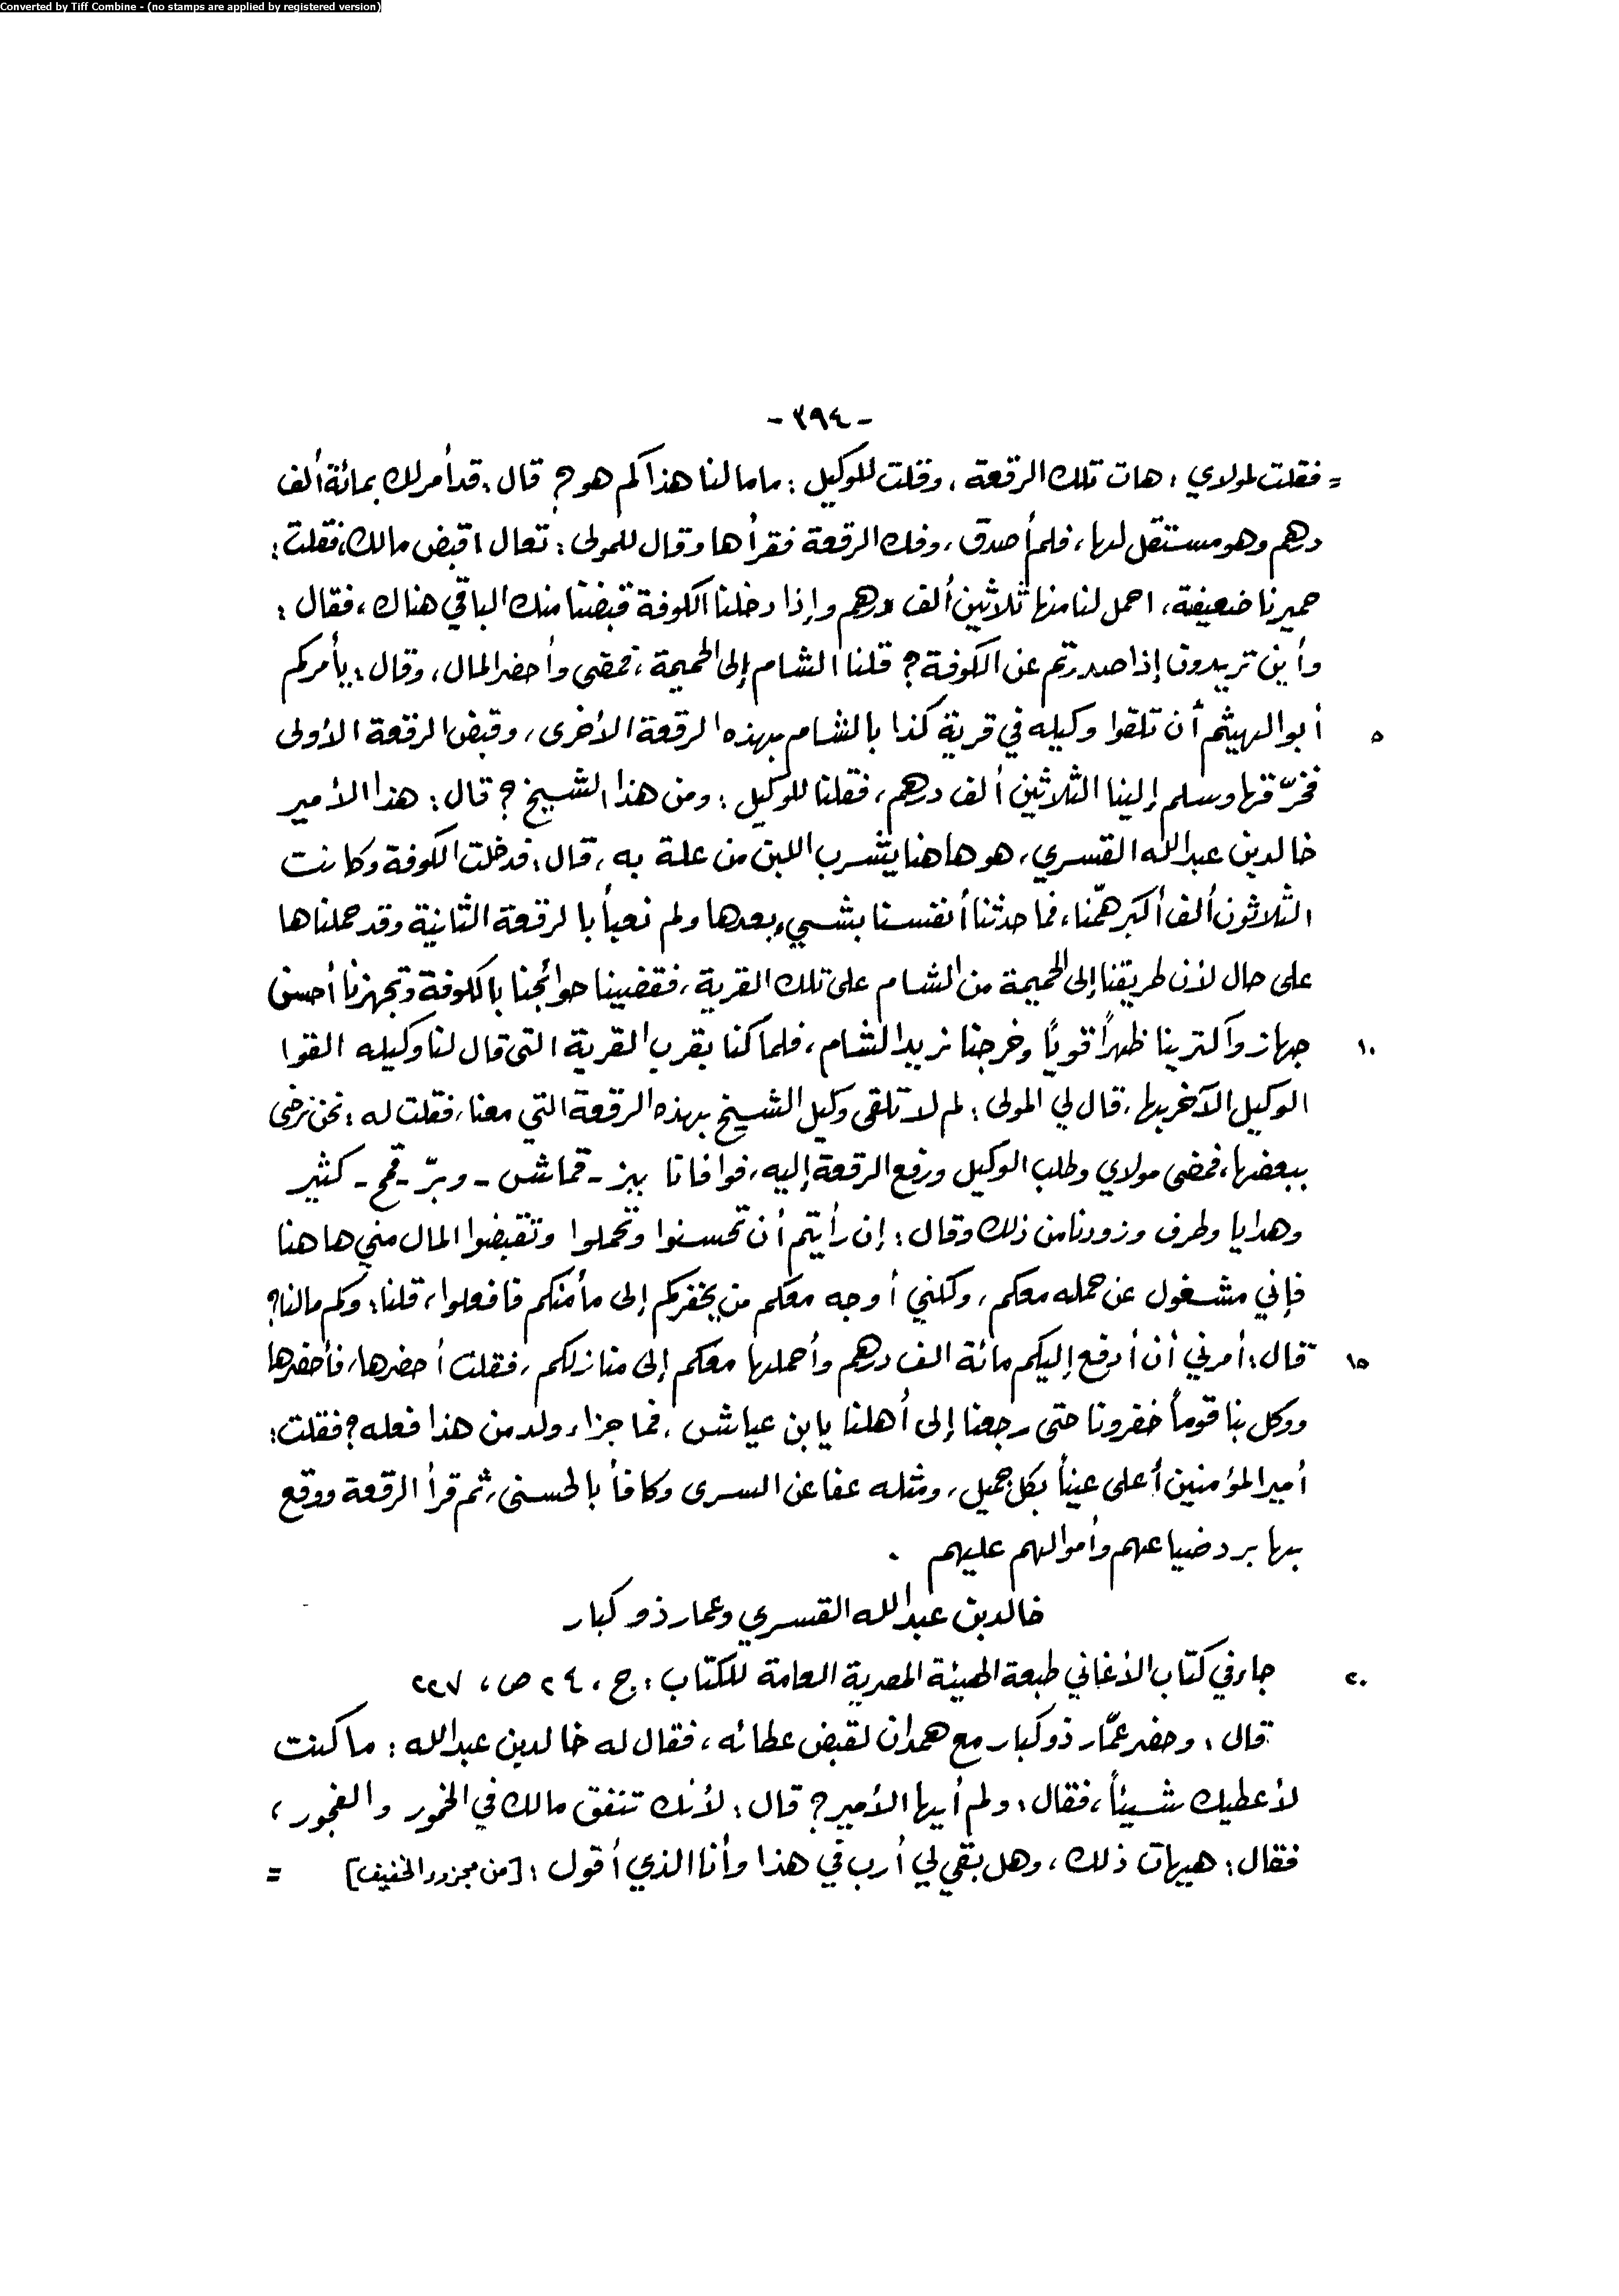 Converted by Tiff Combine - (no stamps are applied by registered version)
- ٣٩٤ -
= فقلت لمولاي : هات تلك الرقعة ، وقلت للوكيل : ما مالنا هذا كم هو ؟ قال : قد أمر لك بمائة ألف
درهم وهو مستقل لها ، فلم أصدق ، وفك الرقعة فقرأها وقال للمولى : تعال اقبض مالك ، فقلت :
حميرنا ضعيفة ، احمل لنا منها ثلاثين ألف درهم وإذا دخلنا الكوفة قبضنا منك الباقي هناك ، فقال :
وأين تريدون إذا صدرتم عن الكوفة ؟ قلنا الشام إلى الحميمة ، فمضى وأحضر المال ، وقال : يأمركم
٥ أبو الهيثم أن تلقوا وكيله في قرية كذا بالشام بهذه الرقعة الأخرى ، وقبض الرقعة الأولى
فخرّقها وسلم إلينا الثلاثين ألف درهم ، فقلنا للوكيل : ومن هذا الشيخ ؟ قال : هذا الأمير
خالد بن عبد الله القسري ، هو هاهنا يشرب اللبن من علة به ، قال : فدخلت الكوفة وكانت
الثلاثون ألف أكبر همّنا ، فما حدثنا أنفسنا بشيء بعدها ولم نعبأ بالرقعة الثانية وقد حملناها
على حال لأن طريقنا إلى الحميمة من الشام على تلك القرية ، فقضينا حوائجنا بالكوفة وتجهزنا أحسن
١٠ جهاز وآكترينا ظهراً قوياً وخرجنا نريد الشام ، فلما كنا بقرب القرية التي قال لنا وكيله القوا
الوكيل الآخر بها ، قال لي المولى : لم لا تلقى وكيل الشيخ بهذه الرقعة التي معنا ، فقلت له : نحن نرضى
ببعضها ، فمضى مولاي وطلب الوكيل ودفع الرقعة إليه ، فوافانا ببز - قماش - وبرّ - قمح - كثير
وهدايا وطرف وزودنا من ذلك وقال : إن رأيتم أن تحسنوا وتجملوا وتقبضوا المال مني هاهنا
فإني مشغول عن حمله معكم ، ولكنني أوجه معكم من يخفركم إلى مأمنكم فافعلوا ، قلنا : وكم مالنا ؟
١٥ قال : أمرني أن أدفع إليكم مائة الف درهم وأحملها معكم إلى منازلكم ، فقلت أحضرها ، فأحضرها
ووكل بنا قوماً خفرونا حتى رجعنا إلى أهلنا يابن عياش ، فما جزاء ولد من هذا فعله ؟ فقلت :
أمير المؤمنين أعلى عيناً بكل جميل ، ومثله عفا عن السرى وكافأ بالحسنى ، ثم قرأ الرقعة ووقع
بها برد ضياعهم وأموالهم عليهم .
خالد بن عبد الله القسري وعمار ذو كبار
٢٠ جاء في كتاب الأغاني طبعة الهيئة المصرية العامة للكتاب : ج ، ٢٤ ص ، ٢٢٧
قال : وحضر عمّار ذو كبار مع همدان لقبض عطائه ، فقال له خالد بن عبد الله : ما كنت
لأعطيك شيئاً ، فقال : ولم أيها الأمير ؟ قال : لأنك تنفق مالك في الخمور والفجور ،
فقال : هيهات ذلك ، وهل بقي لي أرب في هذا وأنا الذي أقول : [من مجزوء الخفيف] =